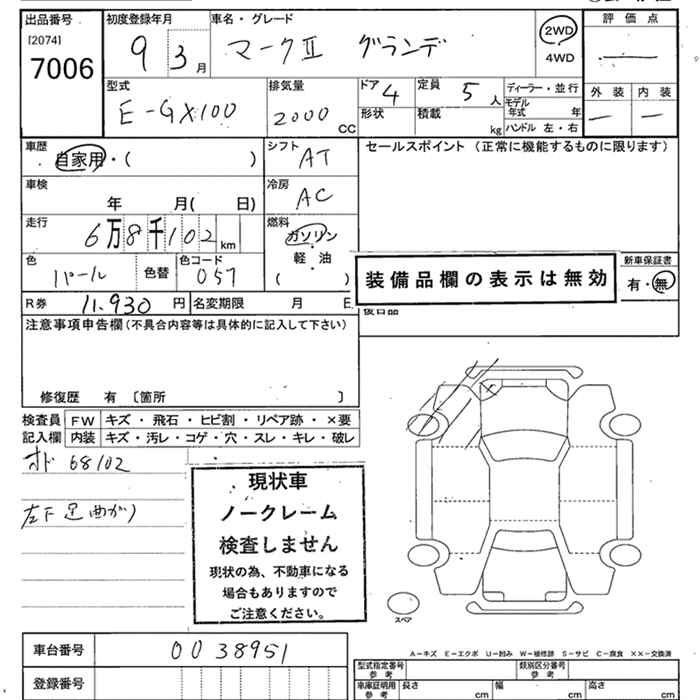 出品番号 初度登録年月 車名・グレード 評価点
[2074]
7006 9 3月 マークII グランデ 2WD
4WD
型式 排気量 ドア 定員 ディーラー・並行 外装 内装
E-GX100 2000 CC 4 5人 モデル年式 年
形状 積載 kg ハンドル 左・右
車歴 シフト セールスポイント (正常に機能するものに限ります)
自家用・( ) AT
車検 冷房
年 月( 日) AC
走行 燃料
6万8千102km ガソリン
軽・油
( )
色 色替 色コード 新車保証書
パール 057 有・無
装備品欄の表示は無効
R券 11,930円 名変期限 月
注意事項申告欄 (不具合内容等は具体的に記入して下さい)
修復歴 有 〔箇所 〕
検査員 FW キズ・飛石・ヒビ割・リペア跡・×要
記入欄 内装 キズ・汚レ・コゲ・穴・スレ・キレ・破レ
オド 68102
左下足曲がり
現状車
ノークレーム
検査しません
現状の為、不動車になる
場合もありますので
ご注意ください。
スペア
車台番号 0038951
登録番号
A-キズ E-エクボ U-凹み W-補修跡 S-サビ C-腐食 XX-交換済
型式指定番号 参考 類別区分番号 参考
車庫証明用 参考 長さ cm 幅 cm 高さ cm